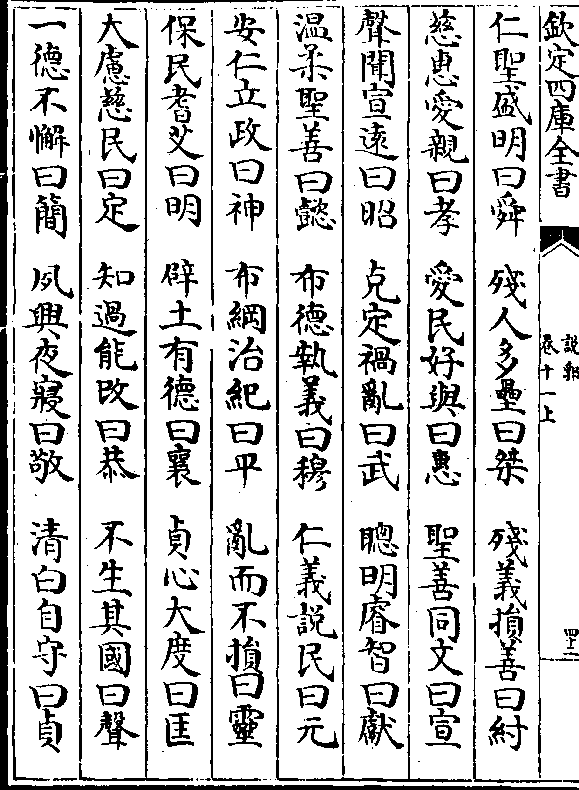 欽定四庫全書
說郛
卷十一上
四十二
仁聖盛明曰舜　殘人多壘曰桀　殘義損善曰紂
慈惠愛親曰孝　愛民好與曰惠　聖善同文曰宣
聲聞宣遠曰昭　克定禍亂曰武　聰明睿智曰獻
温柔聖善曰懿　布德執義曰穆　仁義說民曰元
安仁立政曰神　布綱治紀曰平　亂而不損曰靈
保民耆艾曰明　辟土有德曰襄　貞心大度曰匡
大慮慈民曰定　知過能改曰恭　不生其國曰聲
一德不懈曰簡　夙興夜寢曰敬　清白自守曰貞